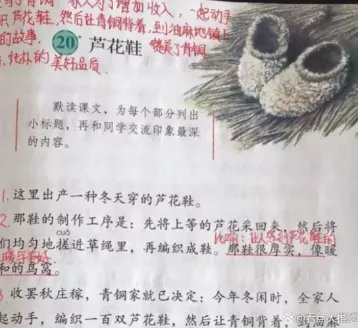 家人为了增加收入,一起动手
织芦花鞋,然后让青铜背着,到油麻地镇上
的故事. 赞美了青铜
20 芦花鞋
朴的美好品质.
默读课文,为每个部分列出
小标题,再和同学交流印象最深
的内容。
1. 这里出产一种冬天穿的芦花鞋。
2. 那鞋的制作工序是:先将上等的芦花采回来,然后将
cuō
们均匀地搓进草绳里,再编织成鞋。那鞋很厚实,像暖
和的鸟窝。
3 收罢秋庄稼,青铜家就已决定:今年冬闲时,全家人
起动手,编织一百双芦花鞋,然后让青铜背着到油麻